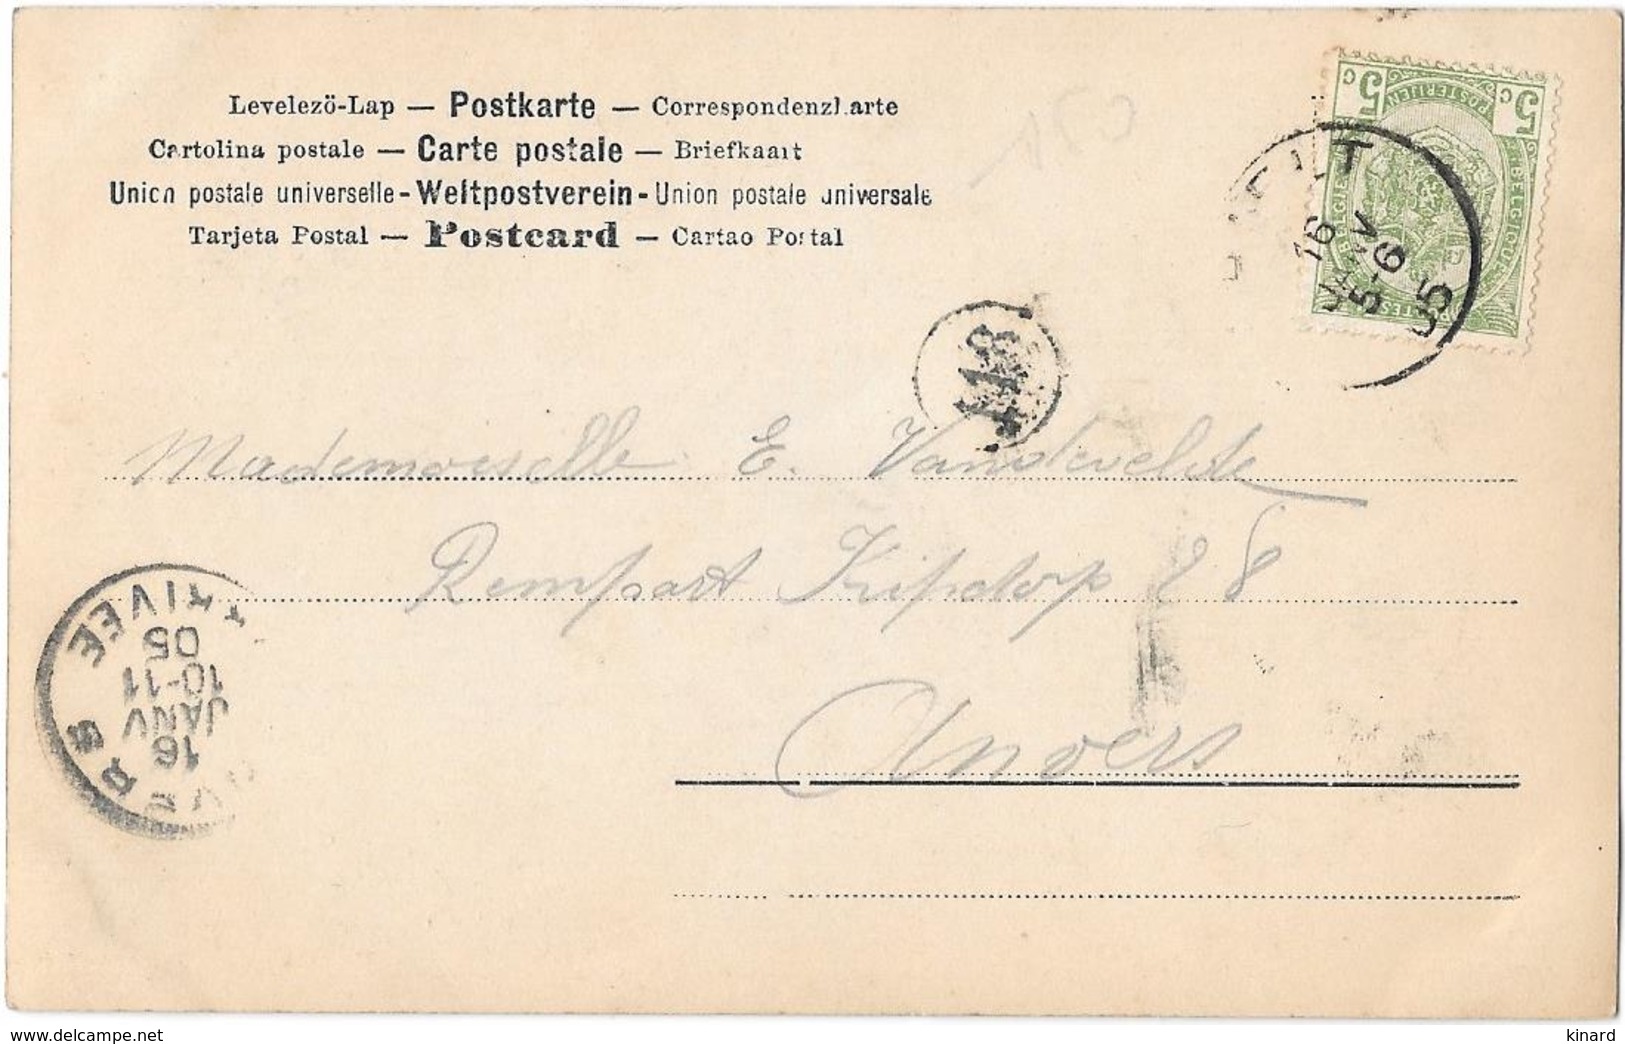 Levelezö-Lap — Postkarte — Correspondenzkarte
Cartolina postale — Carte postale — Briefkaart
Union postale universelle - Weltpostverein - Union postale universale
Tarjeta Postal — Postcard — Cartao Postal
5 c 5 c
POSTERIJEN
16
JANV
5-6
05
118
Mademoiselle E. Vandevelde
Rempart Kipdorp 28
Anvers
ARRIVEE
05
10-11
JANV
16
delcampe.net
kinard